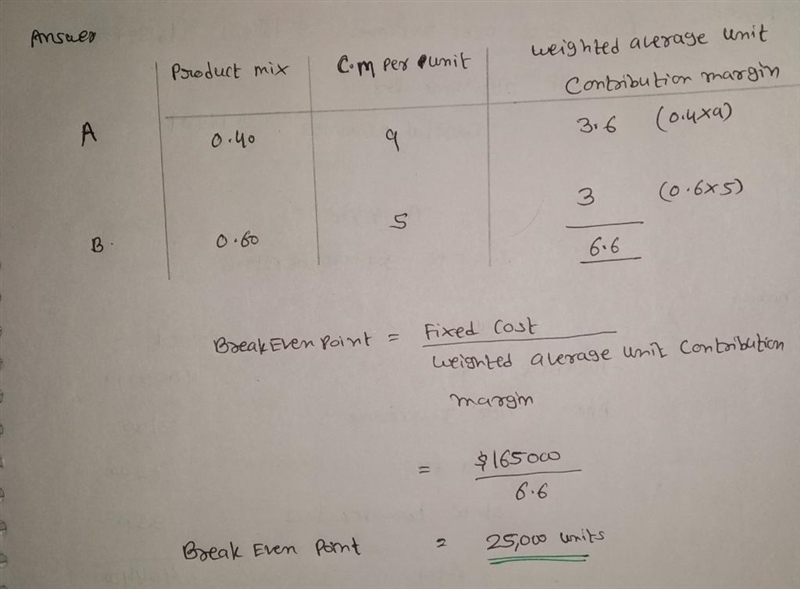 Answer
Product mix C.M per unit weighted average unit
Contribution margin
A 0.40 9 3.6 (0.4x9)
B. 0.60 5 3 (0.6x5)
6.6
Break Even Point = Fixed Cost
weighted average unit contribution
margin
= $165000
6.6
Break Even Point = 25,000 units